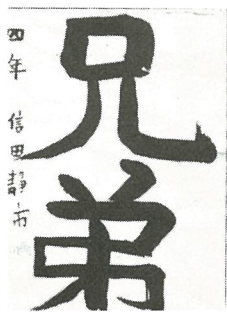 兄弟
四年 信田静市